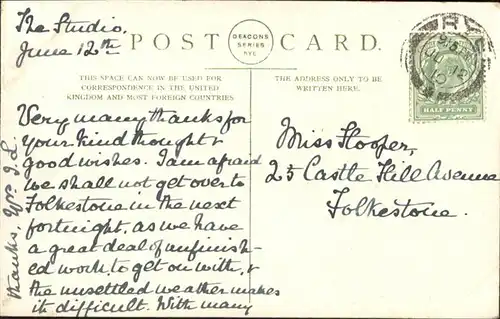 The Studio,
June 12th
POST CARD.
DEACONS
SERIES
RYE
THIS SPACE CAN NOW BE USED FOR
CORRESPONDENCE IN THE UNITED
KINGDOM AND MOST FOREIGN COUNTRIES
THE ADDRESS ONLY TO BE
WRITTEN HERE.
RYE
HALF PENNY
Very many thanks for
your kind thought &
good wishes. I am afraid
we shall not get over to
Folkestone in the next
fortnight, as we have
a great deal of unfinish-
ed work to get on with, &
the unsettled weather makes
it difficult. With many
thanks, Yrs J.L.
Miss Hooper,
25 Castle Hill Avenue
Folkestone.